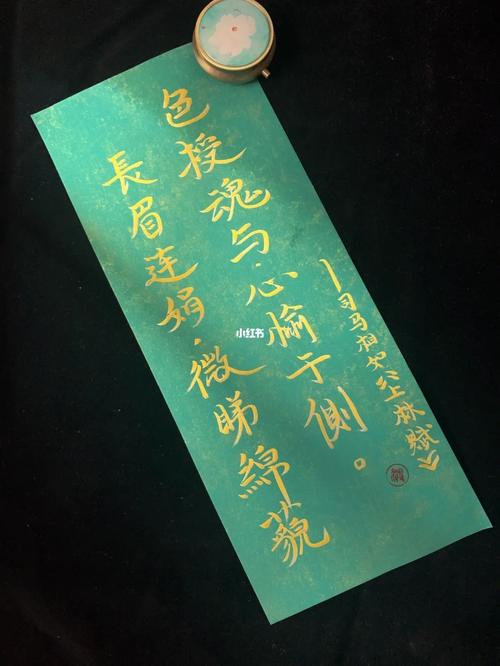 長眉连娟，微睇綿藐
色授魂与，心愉于側。
—司马相如《上林赋》
小红书